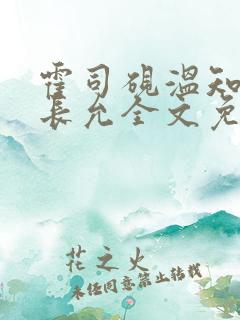 霍司砚温知
长允全文免
花之火
未经同意禁止转载